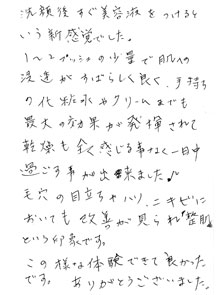 洗顔後すぐ美容液をつけると
いう新感覚でした。
1～2プッシュの少量で肌への
浸透がすばらしく良く、手持ち
の化粧水やクリームまでも
最大の効果が発揮されて
乾燥も全く感じる事なく一日中
過ごす事が出来ました♪
毛穴の目立ちやハリ、ニキビに
おいても改善が見られ"整肌"
という印象です。
この様な体験できて良かった
です。 ありがとうございました。